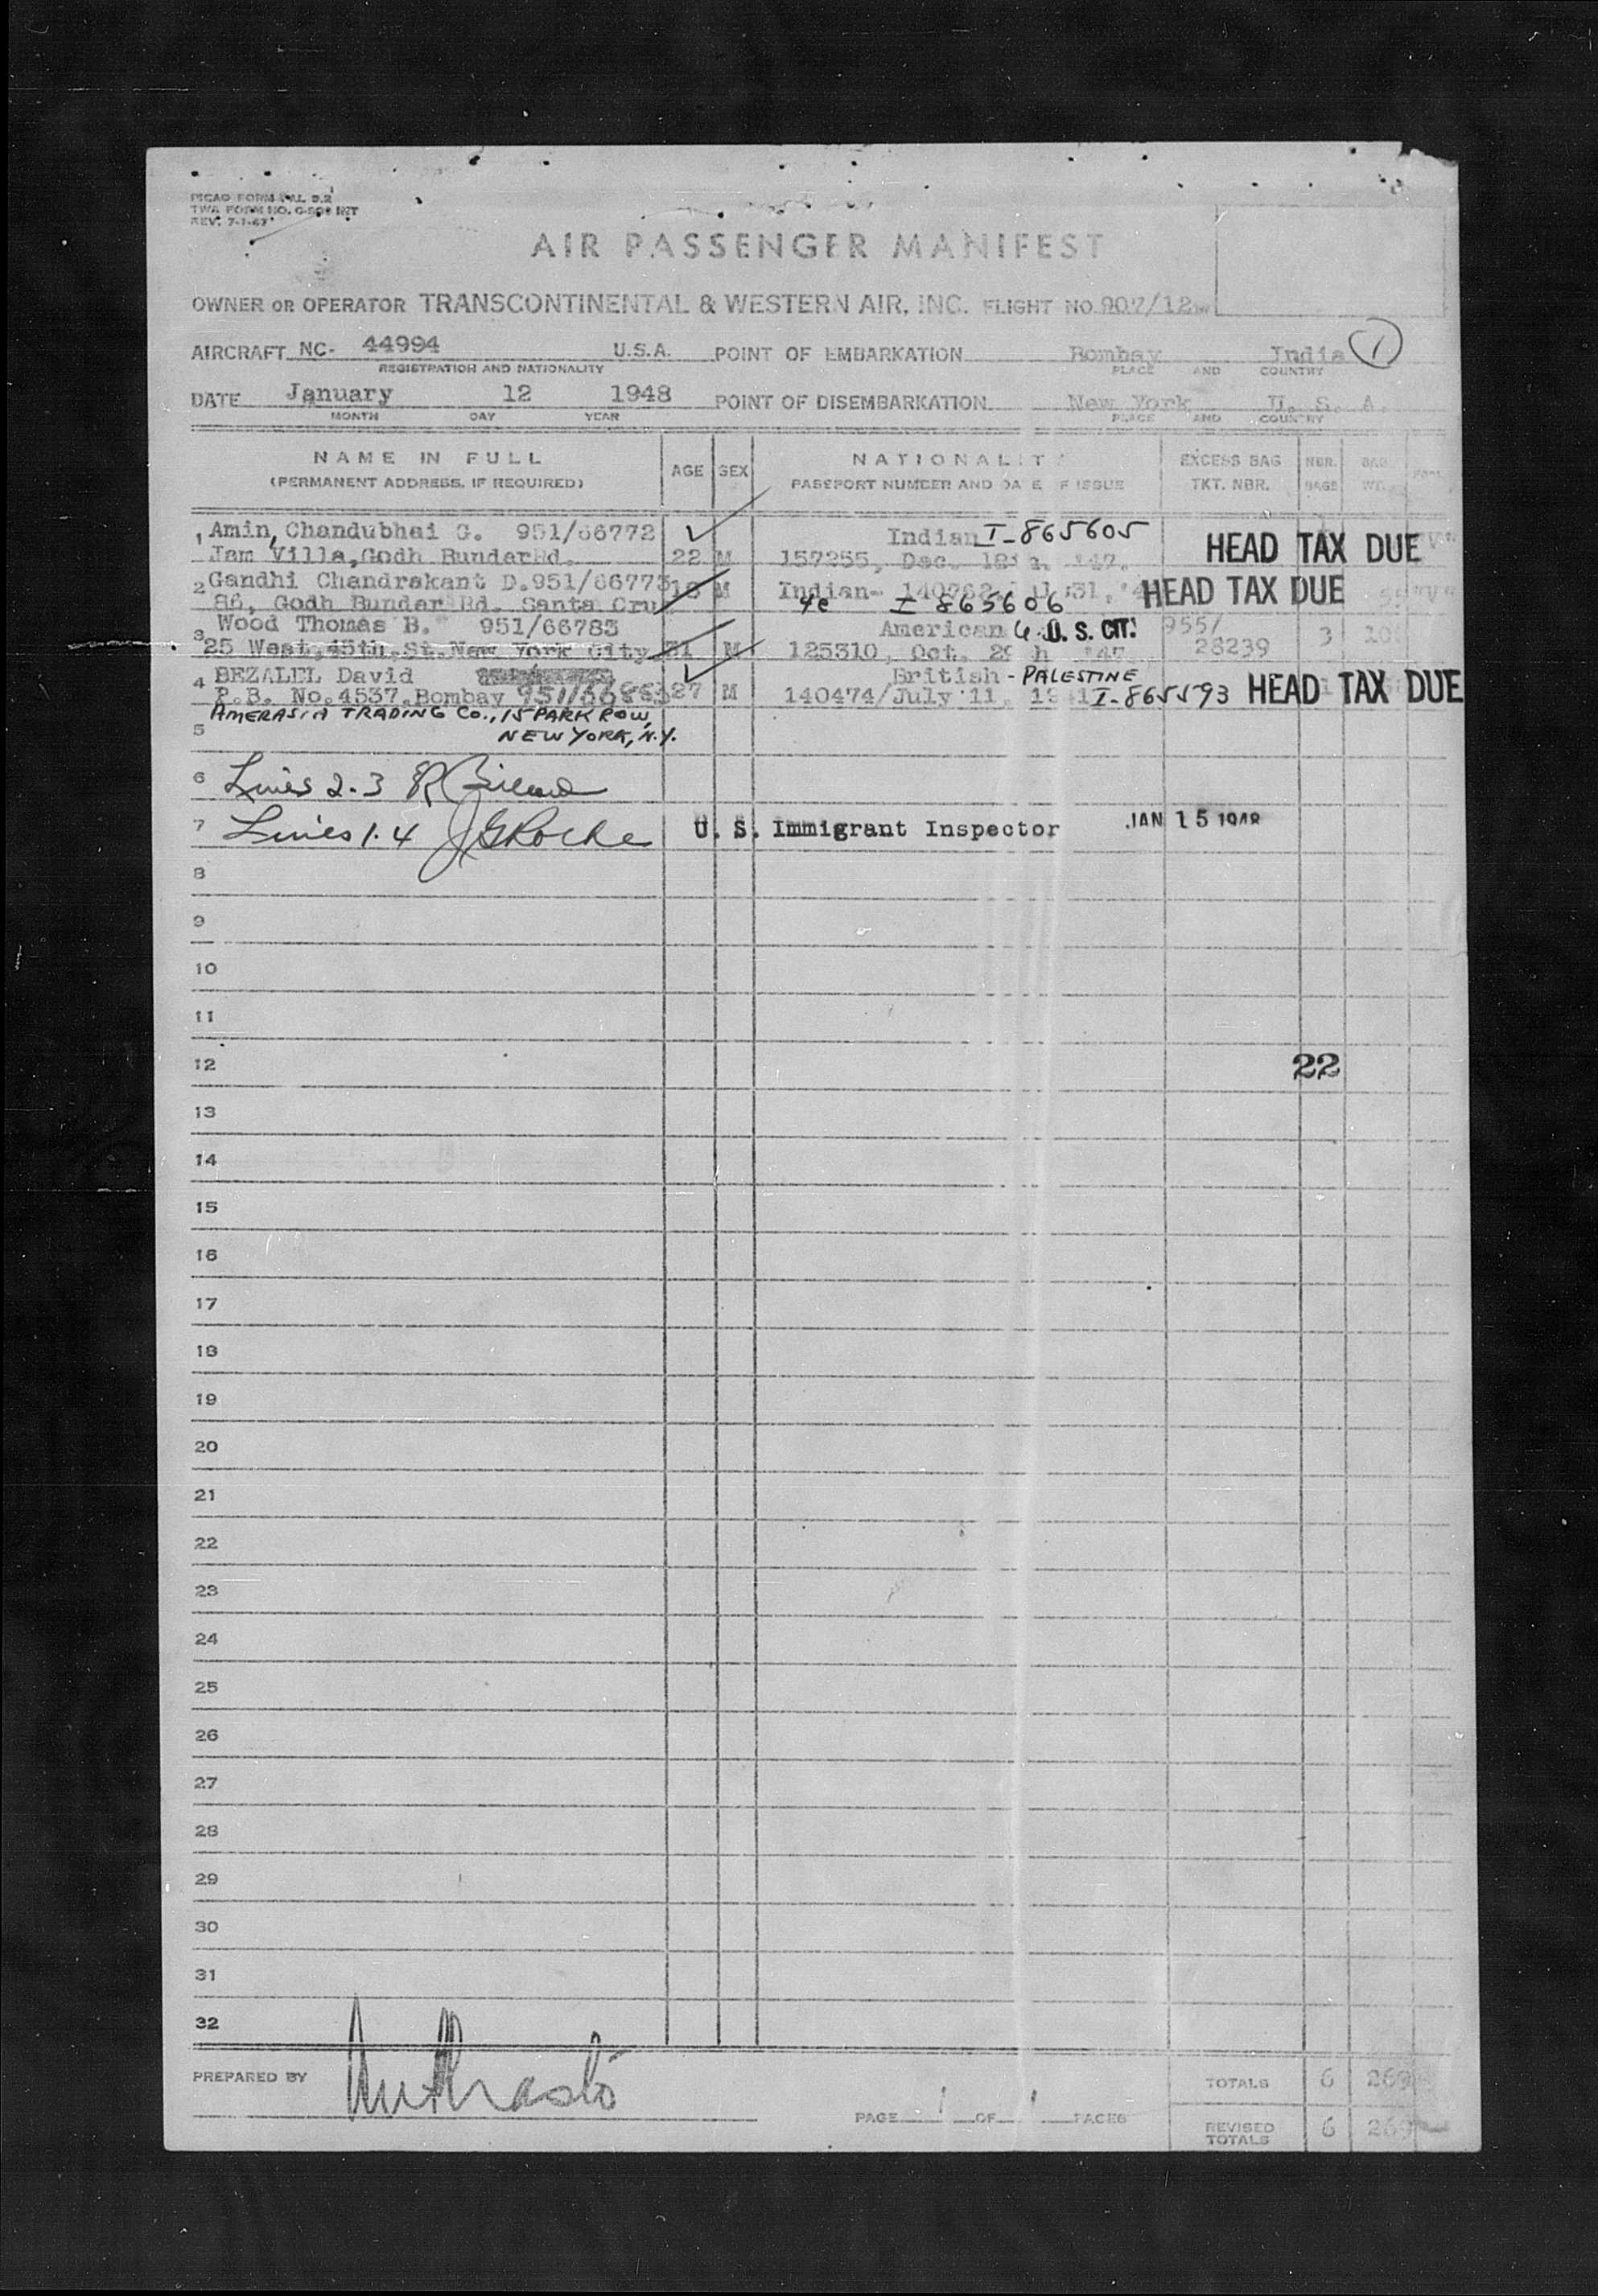 PICAO FORM
TWA FORM NO. INT
REV. 7-1-47
AIR PASSENGER MANIFEST
OWNER OR OPERATOR TRANSCONTINENTAL & WESTERN AIR, INC. FLIGHT NO. 907/12
AIRCRAFT NC- 44994 U.S.A. POINT OF EMBARKATION Bombay India 1
REGISTRATION AND NATIONALITY PLACE AND COUNTRY
DATE January 12 1948 POINT OF DISEMBARKATION New York U. S. A.
MONTH DAY YEAR PLACE AND COUNTRY
NAME IN FULL AGE SEX NATIONALITY EXCESS BAG NBR. BAG
(PERMANENT ADDRESS, IF REQUIRED) PASSPORT NUMBER AND DATE OF ISSUE TKT. NBR. BAGS WT.
1 Amin, Chandubhai G. 951/66772 Indian I-865605 HEAD TAX DUE
Jam Villa, Godh Bunder Rd. 22 M 157255, Dec. '47.
2 Gandhi Chandrakant D. 951/66773 18 M Indian- HEAD TAX DUE
86, Godh Bunder Rd. Santa Cru 4e I 865606
3 Wood Thomas B. 951/66783 American U. S. CIT. 955/
25 West, 45th, St. New York City 31 M 125310, Oct. '47 28239 3
4 BEZALEL David British - PALESTINE
P.B. No. 4537, Bombay 951/66863 27 M 140474/July 11, I-865593 HEAD TAX DUE
AMERASIA TRADING Co., 15 PARK ROW,
5 NEW YORK, N.Y.
6 Lines 2-3
7 Lines 1-4 J G Roche U. S. Immigrant Inspector JAN 15 1948
8
9
10
11
12 22
13
14
15
16
17
18
19
20
21
22
23
24
25
26
27
28
29
30
31
32
PREPARED BY TOTALS 6 269
PAGE 1 OF 1 PAGES
REVISED TOTALS 6 269